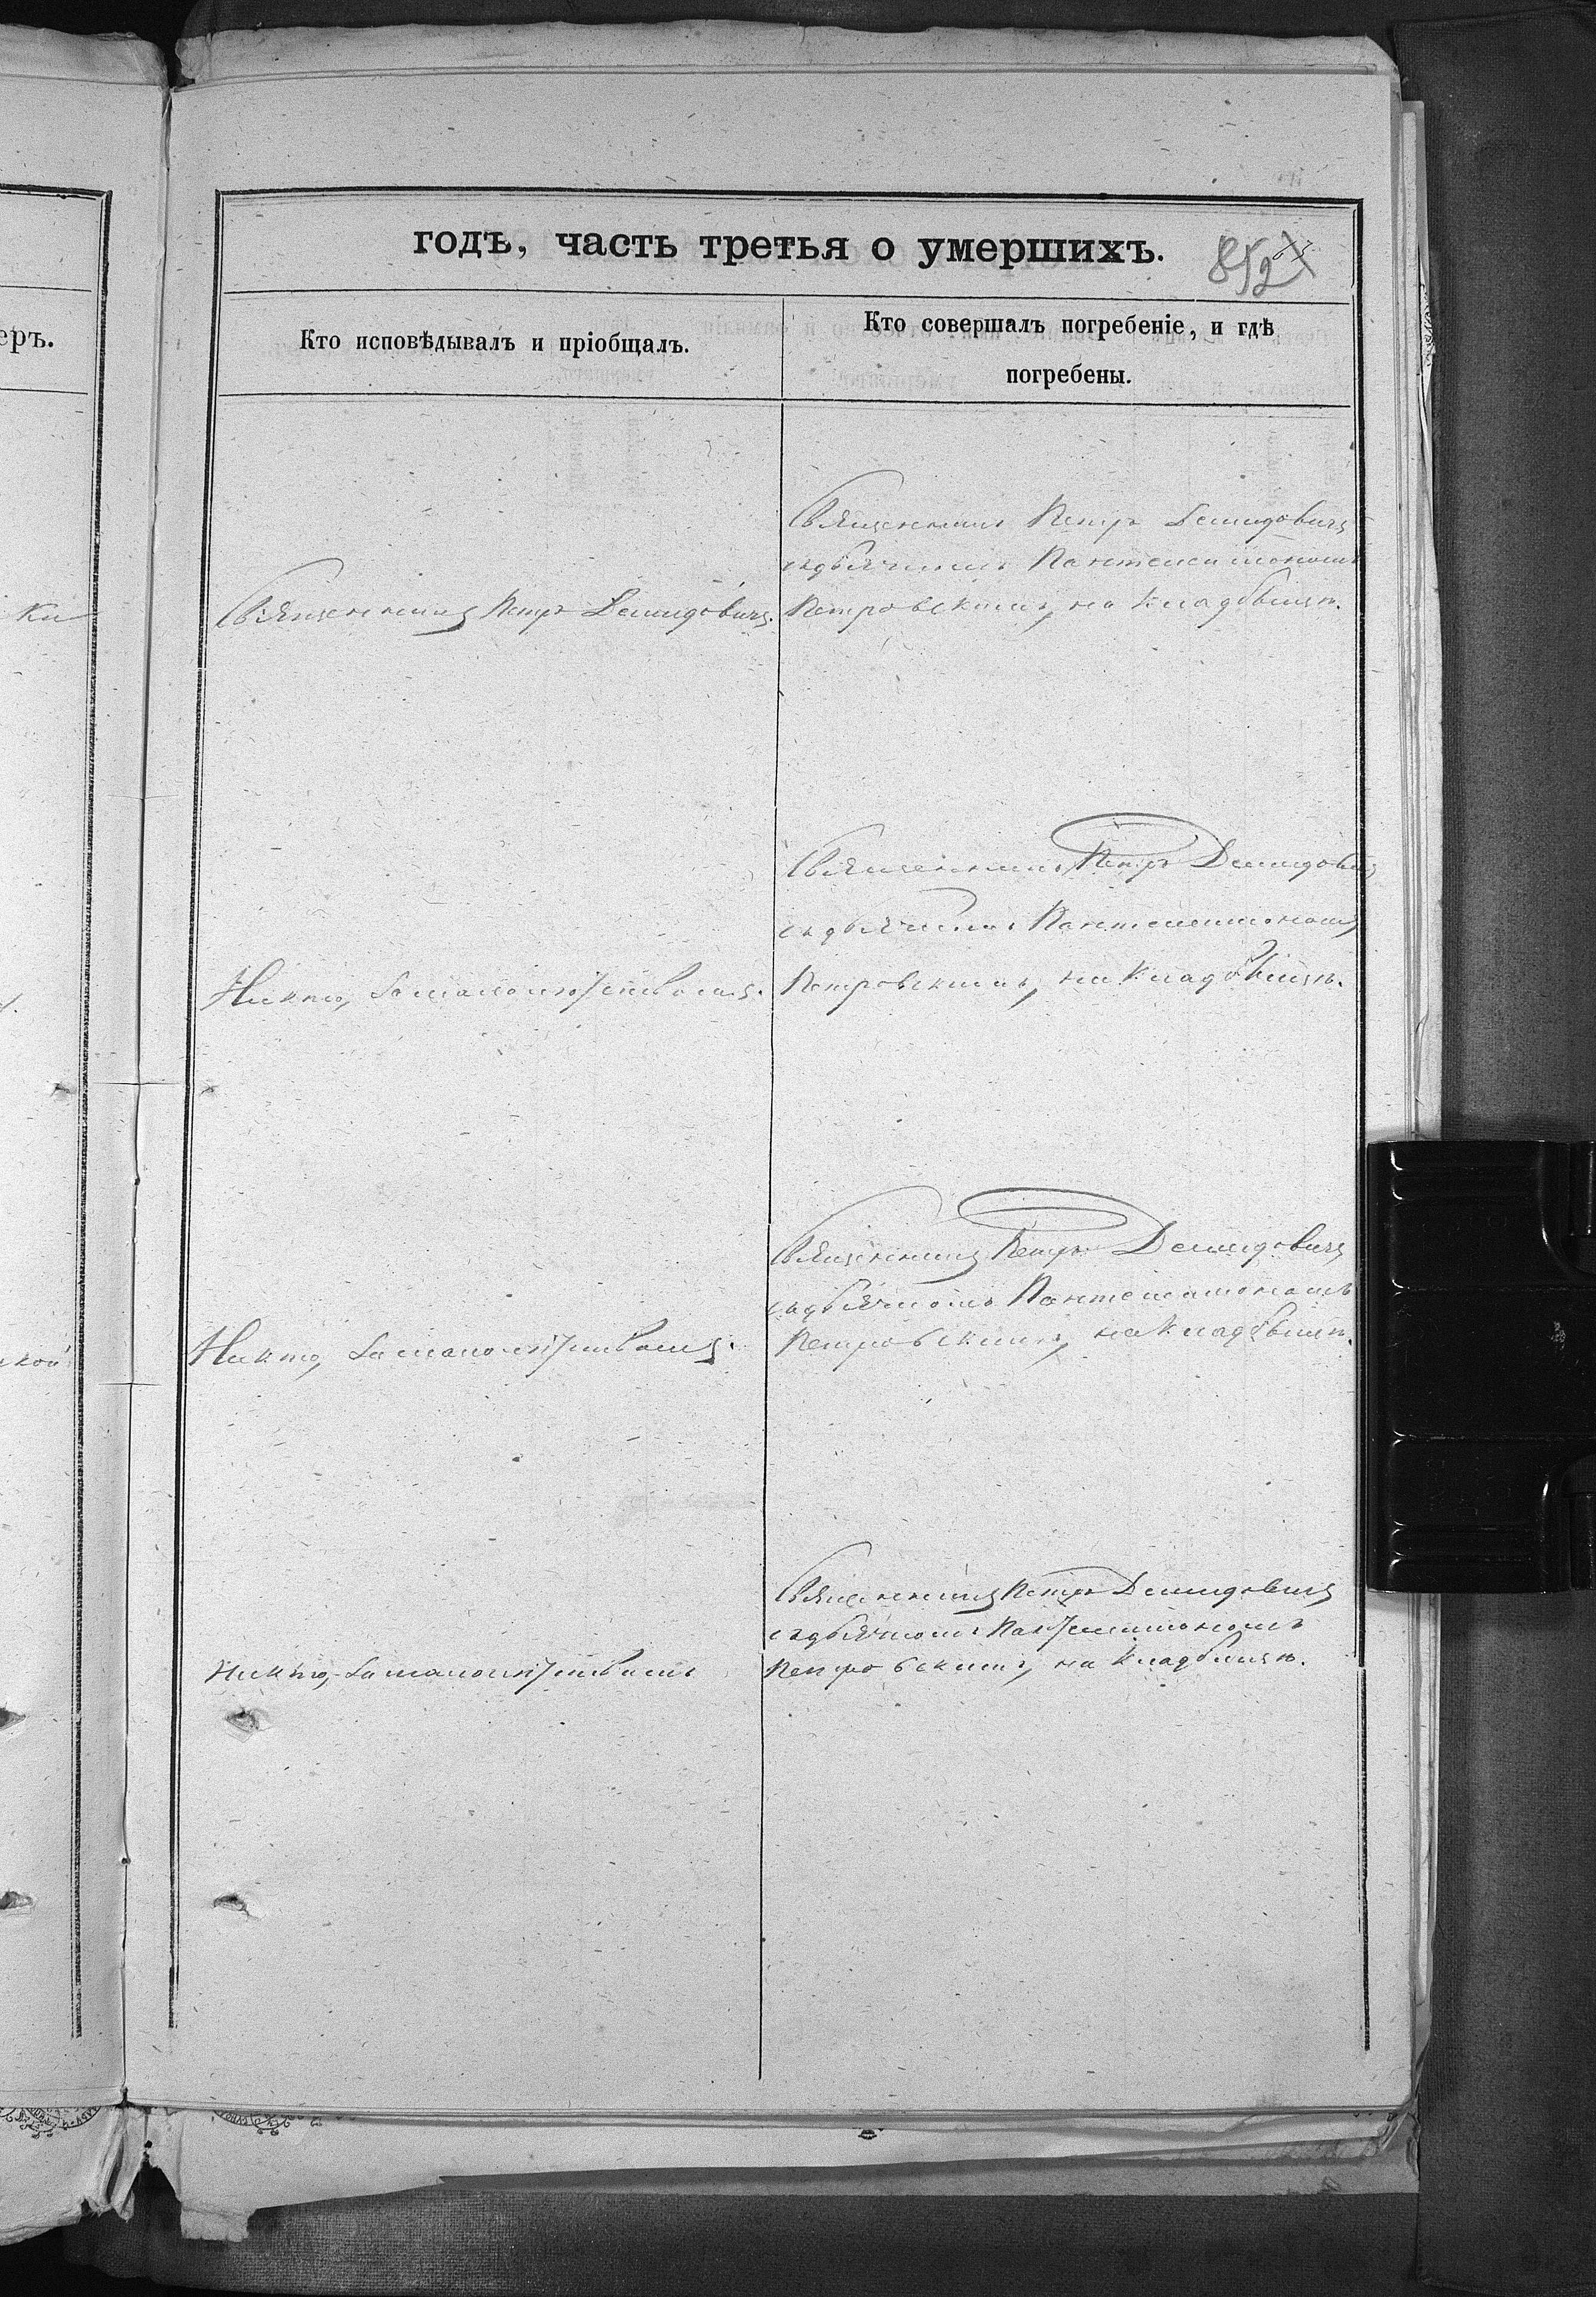 еръ.
ки
ской
годъ, часть третья о умершихъ.
852
Кто исповѣдывалъ и пріобщалъ.
Кто совершалъ погребеніе, и гдѣ
погребены.
Священникъ Петръ Демидовичъ
съ дьячкомъ Пантелеимономъ
Священникъ Петръ Демидовичъ.
Петровскимъ, на кладбищѣ.
Священникъ Петръ Демидовичъ
съ дьячкомъ Пантелеимономъ
Никто, за малолѣтствомъ.
Петровскимъ, на кладбищѣ.
Священникъ Петръ Демидовичъ
съ дьячкомъ Пантелеимономъ
Никто, за малолѣтствомъ.
Петровскимъ, на кладбищѣ.
Священникъ Петръ Демидовичъ
съ дьячкомъ Пантелеимономъ
Никто, за малолѣтствомъ
Петровскимъ, на кладбищѣ.